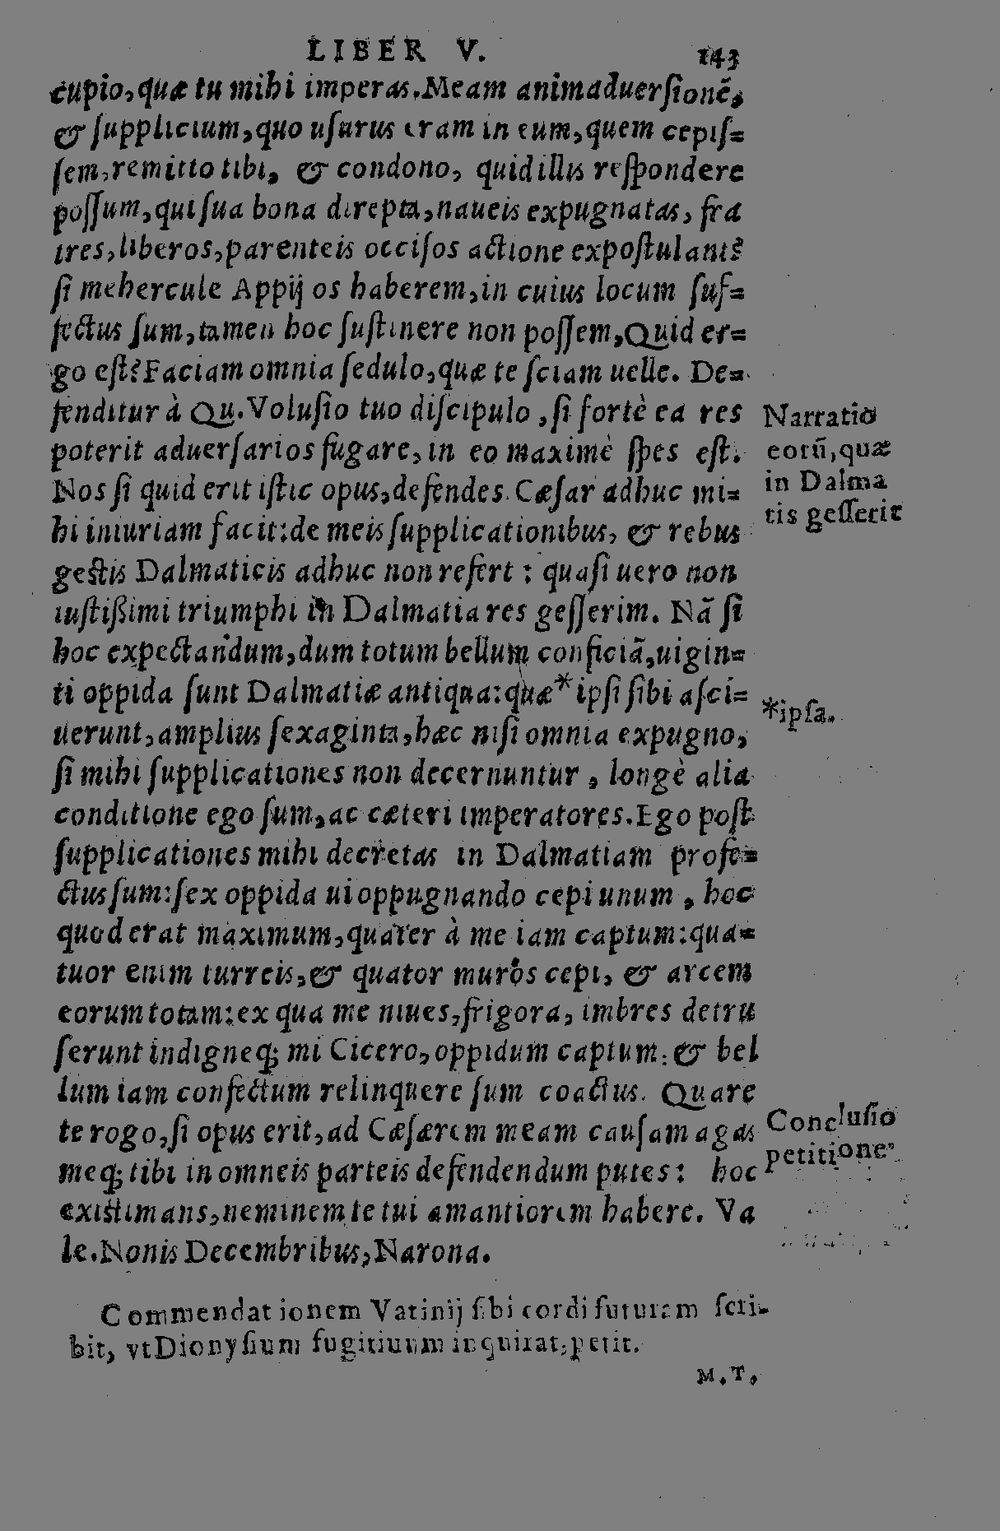 LIBER V. 143
cupio, quæ tu mihi imperas. Meam animaduersionẽ,
& supplicium, quo usurus eram in eum, quem cepis=
sem, remitto tibi, & condono, quid illis respondere
possum, qui sua bona direpta, naueis expugnatas, fra
tres, liberos, parenteis occisos actione expostulant?
si mehercule Appij os haberem, in cuius locum suf=
fectus sum, tamen hoc sustinere non possem, Quid er=
go est? Faciam omnia sedulo, quæ te sciam uelle. De=
fenditur à Qu. Volusio tuo discipulo, si fortè ea res
poterit aduersarios fugare, in eo maximè spes est.
Narratio
eorũ, quæ
in Dalma
tis gesserit
Nos si quid erit istic opus, defendes. Cæsar adhuc mi=
hi iniuriam facit: de meis supplicationibus, & rebus
gestis Dalmaticis adhuc non refert: quasi uero non
iustißimi triumphi in Dalmatia res gesserim. Nã si
hoc expectandum, dum totum bellum conficiã, uigin=
ti oppida sunt Dalmatiæ antiqua: quæ * ipsi sibi asci=
*ipsa.
uerunt, amplius sexaginta, hæc nisi omnia expugno,
si mihi supplicationes non decernuntur, longè alia
conditione ego sum, ac cæteri imperatores. Ego post
supplicationes mihi decretas in Dalmatiam profe=
ctus sum: sex oppida ui oppugnando cepi unum, hoc
quod erat maximum, quater à me iam captum: qua=
tuor enim turreis, & quator muros cepi, & arcem
eorum totam: ex qua me niues, frigora, imbres detru
serunt indigneq; mi Cicero, oppidum captum: & bel
lum iam confectum relinquere sum coactus. Quare
te rogo, si opus erit, ad Cæsarem meam causam agas
Conclusio
petitione
meq; tibi in omneis parteis defendendum putes: hoc
existimans, neminem te tui amantiorem habere. Va
le. Nonis Decembribus, Narona.
Commendationem Vatinij sibi cordi futuram scri-
bit, vt Dionysium fugitiuum inquirat, petit.
M. T.